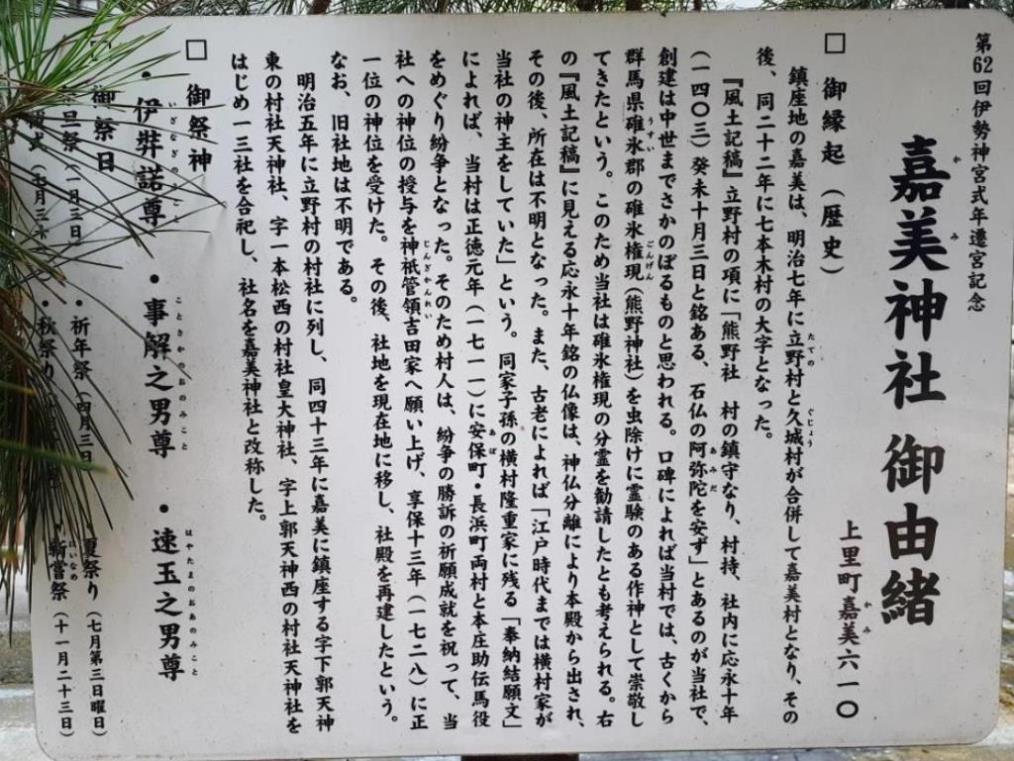 第62回伊勢神宮式年遷宮記念
嘉美神社 御由緒
上里町嘉美六一〇
□ 御縁起（歴史）
鎮座地の嘉美は、明治七年に立野村と久城村が合併して嘉美村となり、その
後、同二十二年に七本木村の大字となった。
『風土記稿』立野村の項に「熊野社 村の鎮守なり、村持、社内に応永十年
（一四〇三）癸未十月三日と銘ある、石仏の阿弥陀を安ず」とあるのが当社で、
創建は中世までさかのぼるものと思われる。口碑によれば当村では、古くから
群馬県碓氷郡の碓氷権現（熊野神社）を虫除けに霊験のある作神として崇敬し
てきたという。このため当社は碓氷権現の分霊を勧請したとも考えられる。右
の『風土記稿』に見える応永十年銘の仏像は、神仏分離により本殿から出され、
その後、所在は不明となった。また、古老によれば「江戸時代までは横村家が
当社の神主をしていた」という。同家子孫の横村隆重家に残る「奉納結願文」
によれば、当村は正徳元年（一七一一）に安保町・長浜町両村と本庄助伝馬役
をめぐり紛争となった。そのため村人は、紛争の勝訴の祈願成就を祝って、当
社への神位の授与を神祇管領吉田家へ願い上げ、享保十三年（一七二八）に正
一位の神位を受けた。その後、社地を現在地に移し、社殿を再建したという。
なお、旧社地は不明である。
明治五年に立野村の村社に列し、同四十三年に嘉美に鎮座する字下郭天神
東の村社天神社、字一本松西の村社皇大神社、字上郭天神西の村社天神社を
はじめ一三社を合祀し、社名を嘉美神社と改称した。
□ 御祭神
・伊弉諾尊 ・事解之男尊 ・速玉之男尊
御祭日
旦祭（一月三日） ・祈年祭（四月三日 夏祭り（七月第三日曜日）
・秋祭り 新嘗祭（十一月二十三日）